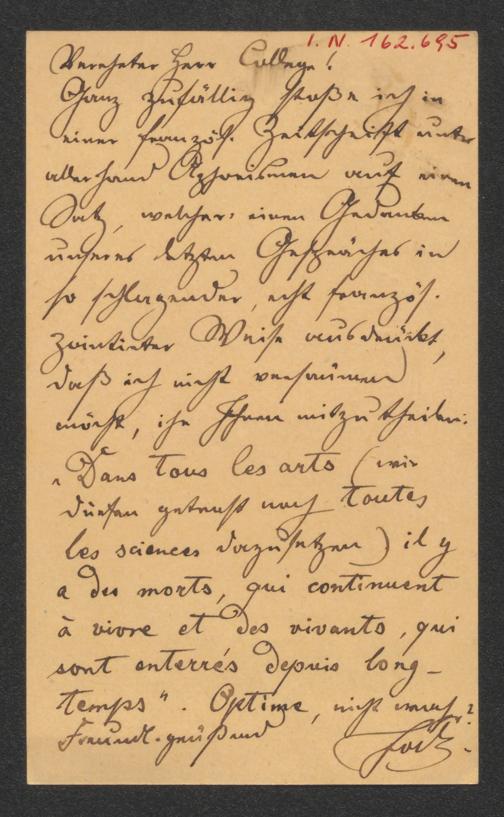 I. N. 162.695
Verehrter Herr College!
Ganz zufällig stoße ich in
einer französ. Zeitschrift unter
allerhand Aphorismen auf einen
Satz, welcher einen Gedanken
unseres letzten Gespräches in
so schlagender, echt französ.
pointirter Weise ausdrückt,
daß ich nicht versäumen
möchte, ihn Ihnen mitzutheilen:
„Dans tous les arts (wir
dürfen getrost noch toutes
les sciences dazusetzen) il y
a des morts, qui continuent
à vivre et des vivants, qui
sont enterrés depuis long-
temps“. Optime, nicht wahr?
Freundl. grüßend